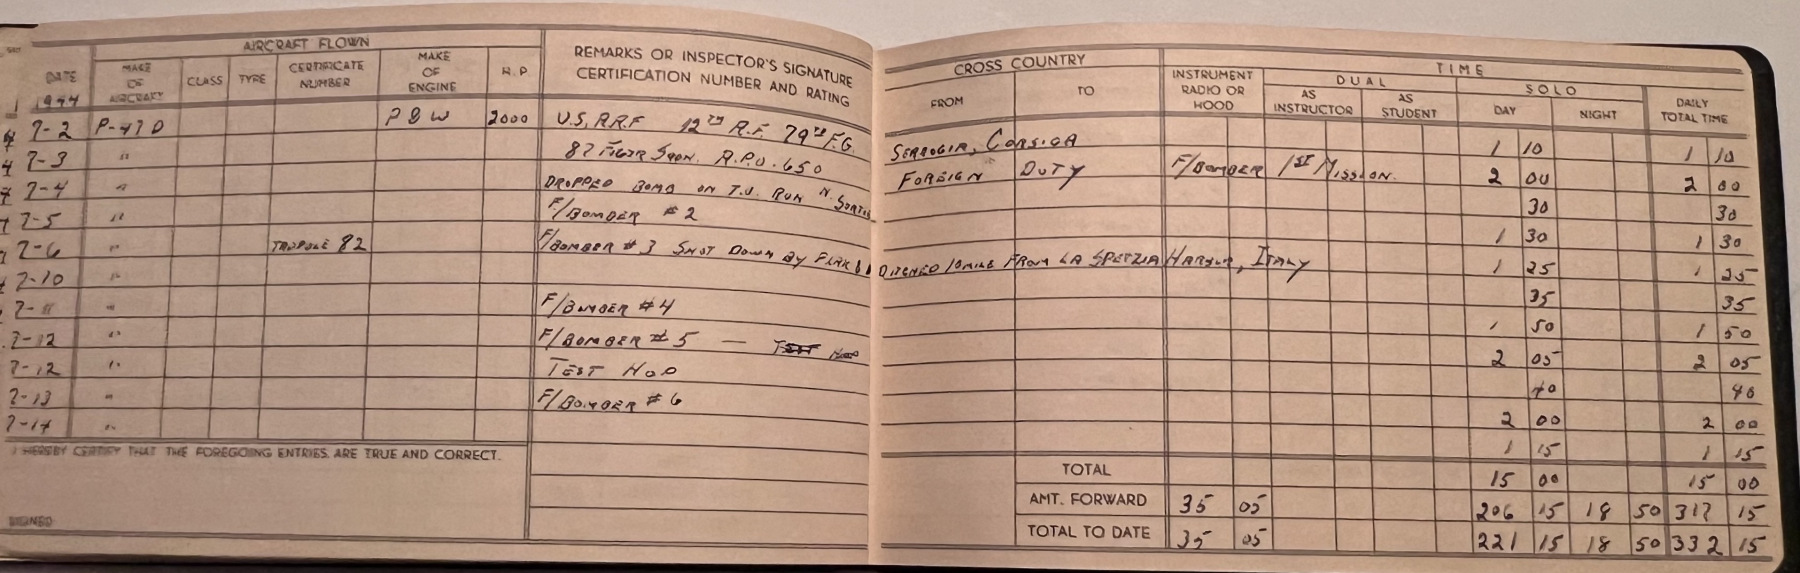 AIRCRAFT FLOWN
DATE MAKE OF AIRCRAFT CLASS TYPE CERTIFICATE NUMBER MAKE OF ENGINE H.P. REMARKS OR INSPECTOR'S SIGNATURE CERTIFICATION NUMBER AND RATING
CROSS COUNTRY FROM TO INSTRUMENT RADIO OR HOOD TIME DUAL AS INSTRUCTOR AS STUDENT SOLO DAY NIGHT DAILY TOTAL TIME
1944
7-2 P-47D P&W 2000 U.S.A.A.F 12TH A.F. 79TH F.G. SERROGIA, CORSICA 1 10 1 10
7-3 " 87 FIGTR SQDN. A.P.O. 650 FOREIGN DUTY F/BOMBER 1ST MISSION. 2 00 2 00
7-4 " DROPPED BOMB ON T.O. RUN N. SORTIE 30 30
7-5 " F/BOMBER #2 1 30 1 30
7-6 " 82 F/BOMBER #3 SHOT DOWN BY FLAK & DITCHED 10 MILE FROM LA SPETZIA HARBOR, ITALY 1 25 1 25
7-10 " 35 35
7-11 " F/BOMBER #4 1 50 1 50
7-12 " F/BOMBER #5 — 2 05 2 05
7-12 " TEST HOP 40 40
7-13 " F/BOMBER #6 2 00 2 00
7-14 " 1 15 1 15
I HEREBY CERTIFY THAT THE FOREGOING ENTRIES ARE TRUE AND CORRECT.
TOTAL 15 00 15 00
AMT. FORWARD 35 05 206 15 18 50 317 15
SIGNED
TOTAL TO DATE 35 05 221 15 18 50 332 15